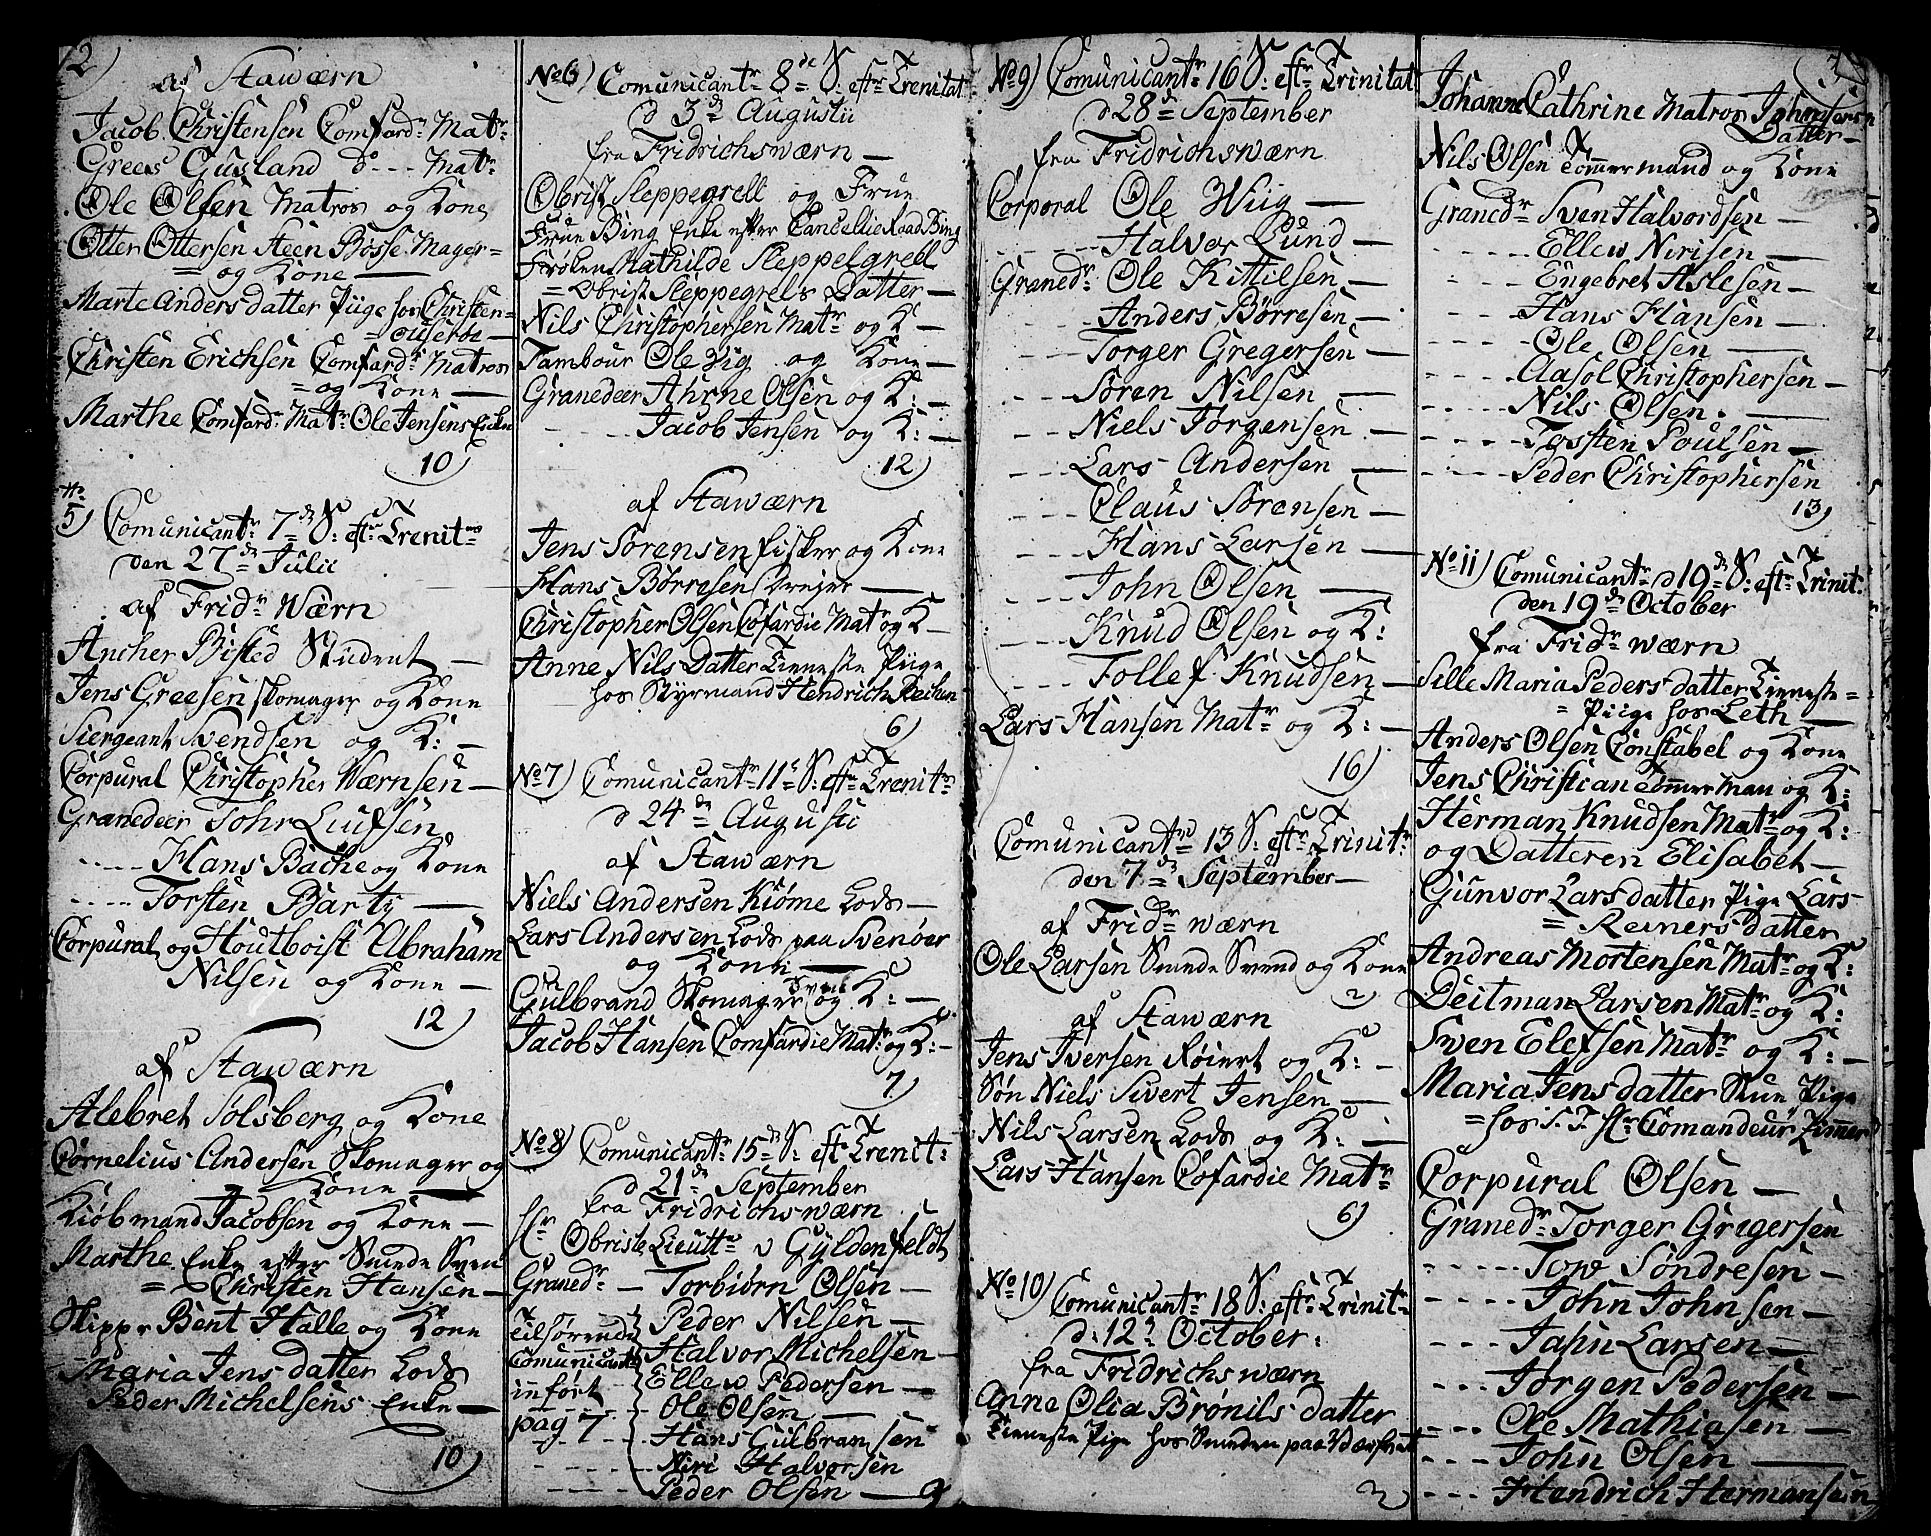 2)
af Stawærn
Jacob Christensen Comfard: Matr:
Grees Gusland do --- Matr
Ole Olsen Matros og Kone
Otter Ottersen Steen Bosse Mager=
= og Kone —
Marte Andersdatter Piige hos Christen=
Christen Erichsen Comfard: Matros
= og Kone —
Marthe Comfard: Matr: Ole Jensens Enke
10)
No 5) Comunicantr: 7de S: eftr Trenits
den 27de Julii
af Fridr Wærn
Ancher Bisted Student —
Jens Greesen Skomager og Kone
Siergeant Svendsen og K: —
Corpural Christopher Wærnsen —
Granedeer Johr Luifsen
---- Hans Bache og Kone
---- Torsten Barty —
Corpural og Houtboist Abraham
Nilsen og Kone —
12)
af Stawærn
Alebret Solsberg og Kone
Cornelius Andersen Skomager og
Kone —
Kiøbmand Jacobsen og Kone —
Marthe Enke efter Smede Sven
= Christen Hansen —
Skippr Bent Halle og Kone
Maria Jens datter Lods
Peder Michelsens Enke —
10)
No 6) Comunicantr: 8de S: eftr Trenitat
d 3de Augustii
fra Fridrichswærn —
Obrist Sleppegrell og Frue
Frue Bing Enke efter Cancellie Raad Bing
Frøken Mathilde Sleppelgrell
= Obrist Sleppegrels Datter —
Nils Christophersen Matr og K —
Tambour Ole Vig og Kone —
Granedeer Ahrne Olsen og K: —
---- Jacob Jensen og K: —
12)
af Stawærn
Jens Sørensen Fisker og Kone
Hans Børresen Dreyer —
Christopher Olsen Cofardie Matr og K —
Anne Nils Datter Tieneste Piige
hos Styrmand Hendrich
6)
No 7) Comunicantr: 11te S: eftr Trenitr:
d 24de Augusti
af Stawærn
Niels Andersen Kiøme Lods —
Lars Andersen Lods paa Svenøer
og Kone —
Gulbrand Skomager Svend og K: —
Jacob Hansen Comfardie Matr: og K: —
7)
No 8) Comunicantr: 15de S: eft Trenit:
d 21de September
fra Fridrichswærn
Hr Obriste Lieuttn v Gyldenfeldt
Granedr — Torbiørn Olsen —
Tilhørende Comunicanter innført pag 7
Peder Nilsen —
Halvor Michelsen —
Ellev Pedersen —
Ole Olsen —
Hans Gulbransen
Niri Halvorsen
Peder Olsen — 9
No 9) Comunicantr: 16 S: eftr Trinitat
d 28de September
fra Fridrichswærn
Corporal Ole Wiig —
---- Halvor Lund —
Granedr: Ole Kittilsen —
---- Anders Børresen —
---- Torger Gregersen —
---- Søren Nilsen —
---- Niels Jørgensen —
---- Lars Andersen —
---- Claus Sørensen —
---- Hans Larsen —
---- John Olsen —
---- Knud Olsen og K:
---- Tollef Knudsen —
Lars Hansen Matr og K: —
16)
Comunicantr 13 S: eftr Trinitr:
den 7de September —
af Fridr wærn
Ole Larsen Smede Svend og Kone
2)
af Stawærn
Jens Iversen Røiert og K: —
Søn Niels Sivert Jensen —
Nils Larsen Lods og K: —
Lars Hansen Cofardie Matr
6)
No 10) Comunicantr: 18 S: eftr Trinitr
d: 12te October:
fra Fridrichswærn
Anne Olia Brønils datter
Tieneste Pige hos Smeden paa
2)
Johanne Cathrine Matros Johnsens
Datter —
Nils Olsen Tømmermand og Kone
Granedr Sven Halvordsen —
---- Ellew Nirisen —
---- Engebret Aslesen —
---- Hans Hansen —
---- Ole Olsen —
---- Aasol Christophersen —
---- Nils Olsen. —
---- Tosten Poulsen —
---- Peder Christophersen
13)
No 11) Comunicantr d 19de S: eftr Trinit:
den 19de October
fra Fridr wærn
Sille Maria Peders datter Tieneste=
= Piige hos Leth —
Anders Olsen Constabel og Kone
Jens Christian Tømmerman og K:
Herman Knudsen Matr og K:
og Datteren Elisabet —
Gunvor Lars datter Pige Lars
= Reiners datter
Andreas Mortensen Matr og K:
Deitman Larsen Matr og K:
Swen Elefsen Matr og K: —
Maria Jens datter Stue Pige
= hos S. T. Hr Comandeur Zimmer
Corpural Olsen —
Granedr: Torger Gregersen
---- Tow Søndresen —
---- John Johnsen —
---- Jahn Larsen —
---- Jørgen Pedersen —
---- Ole Mathiasen —
---- John Olsen —
---- Hendrich Hermansen